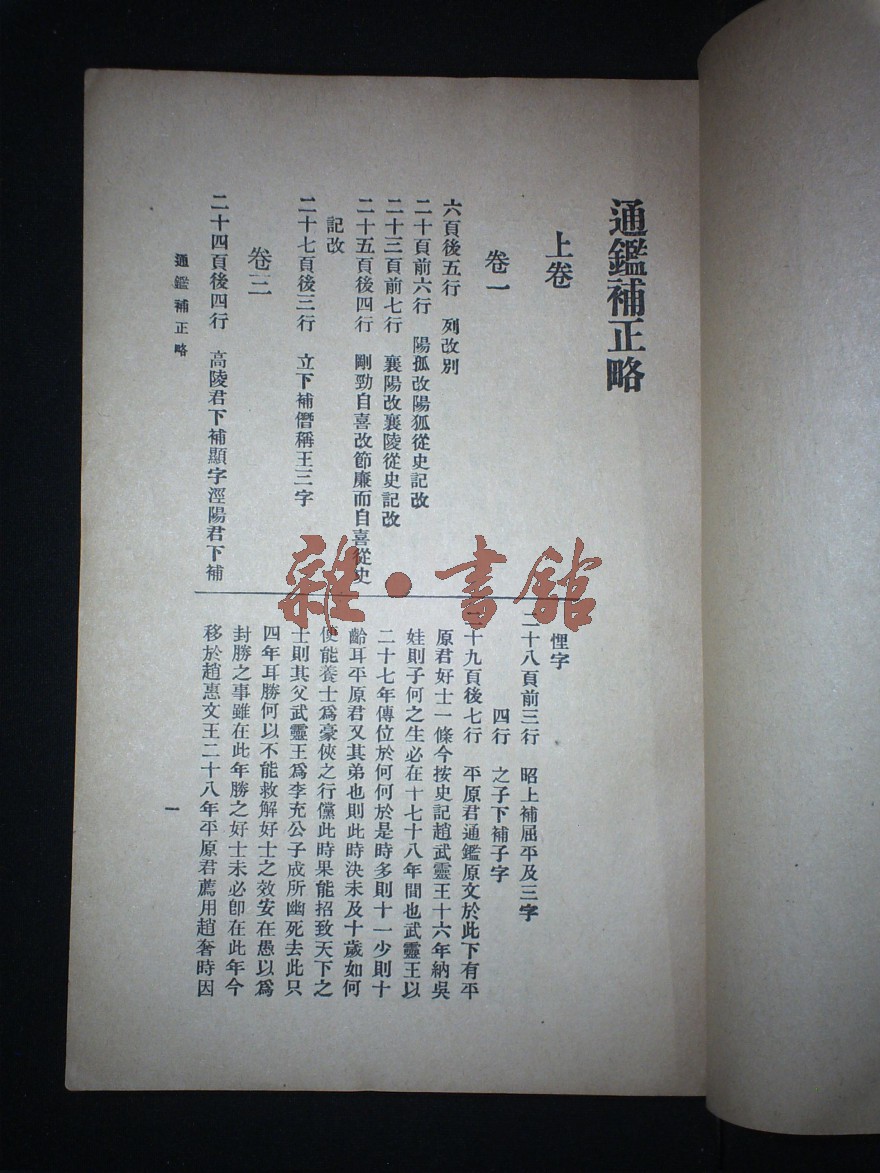 通鑑補正略
上卷
卷一
六頁後五行　列改別
二十頁前六行　陽孤改陽狐從史記改
二十三頁前七行　襄陽改襄陵從史記改
二十五頁後四行　剛勁自喜改節廉而自喜從史
記改
二十七頁後三行　立下補僭稱王三字
卷三
二十四頁後四行　高陵君下補顯字涇陽君下補
悝字
二十八頁前三行　昭上補屈平及三字
四行　之子下補子字
二十九頁後七行　平原君通鑑原文於此下有平
原君好士一條今按史記趙武靈王十六年納吳
娃則子何之生必在十七十八年間也武靈王以
二十七年傳位於何何於是時多則十一少則十
齡耳平原君又其弟也則此時決未及十歲如何
便能養士爲豪俠之行儻此時果能招致天下之
士則其父武靈王爲李充公子成所幽死去此只
四年耳勝何以不能救解好士之效安在愚以爲
封勝之事雖在此年勝之好士未必卽在此年今
移於趙惠文王二十八年平原君薦用趙奢時因
通鑑補正略
一
雜·書館